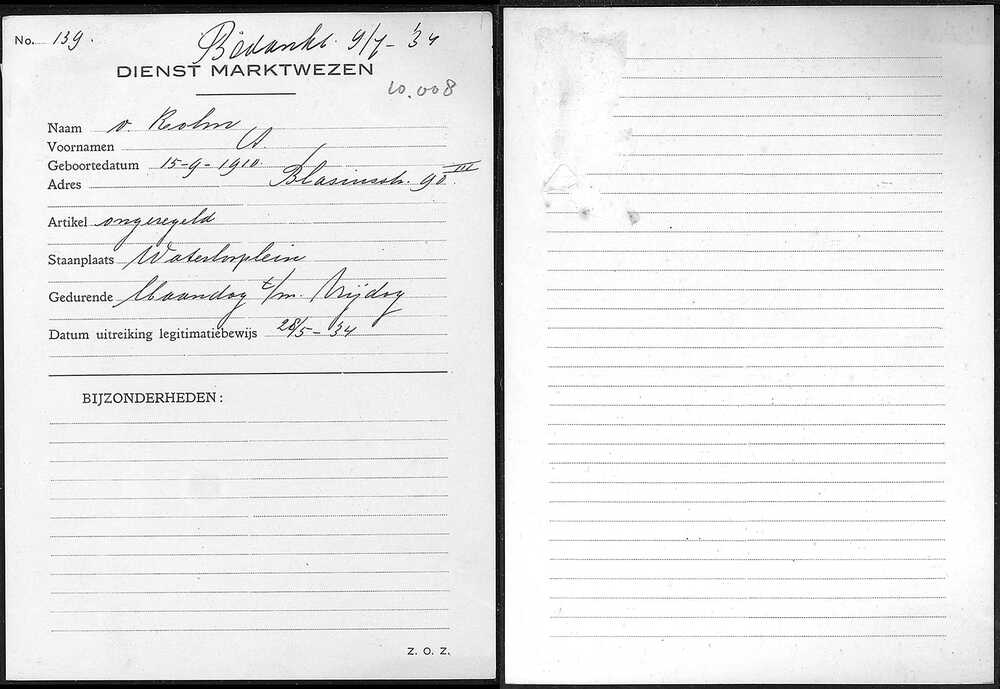 No. 139.
Bedankt. 9/7 - 34
DIENST MARKTWEZEN
10.008
Naam v.
Voornamen A.
Geboortedatum 15-9-1910.
Adres Blasiusstr. 90 III.
Artikel ongeregeld
Staanplaats Waterlooplein
Gedurende Maandag t/m. Vrijdag
Datum uitreiking legitimatiebewijs 28/5 - 34
BIJZONDERHEDEN:
Z. O. Z.